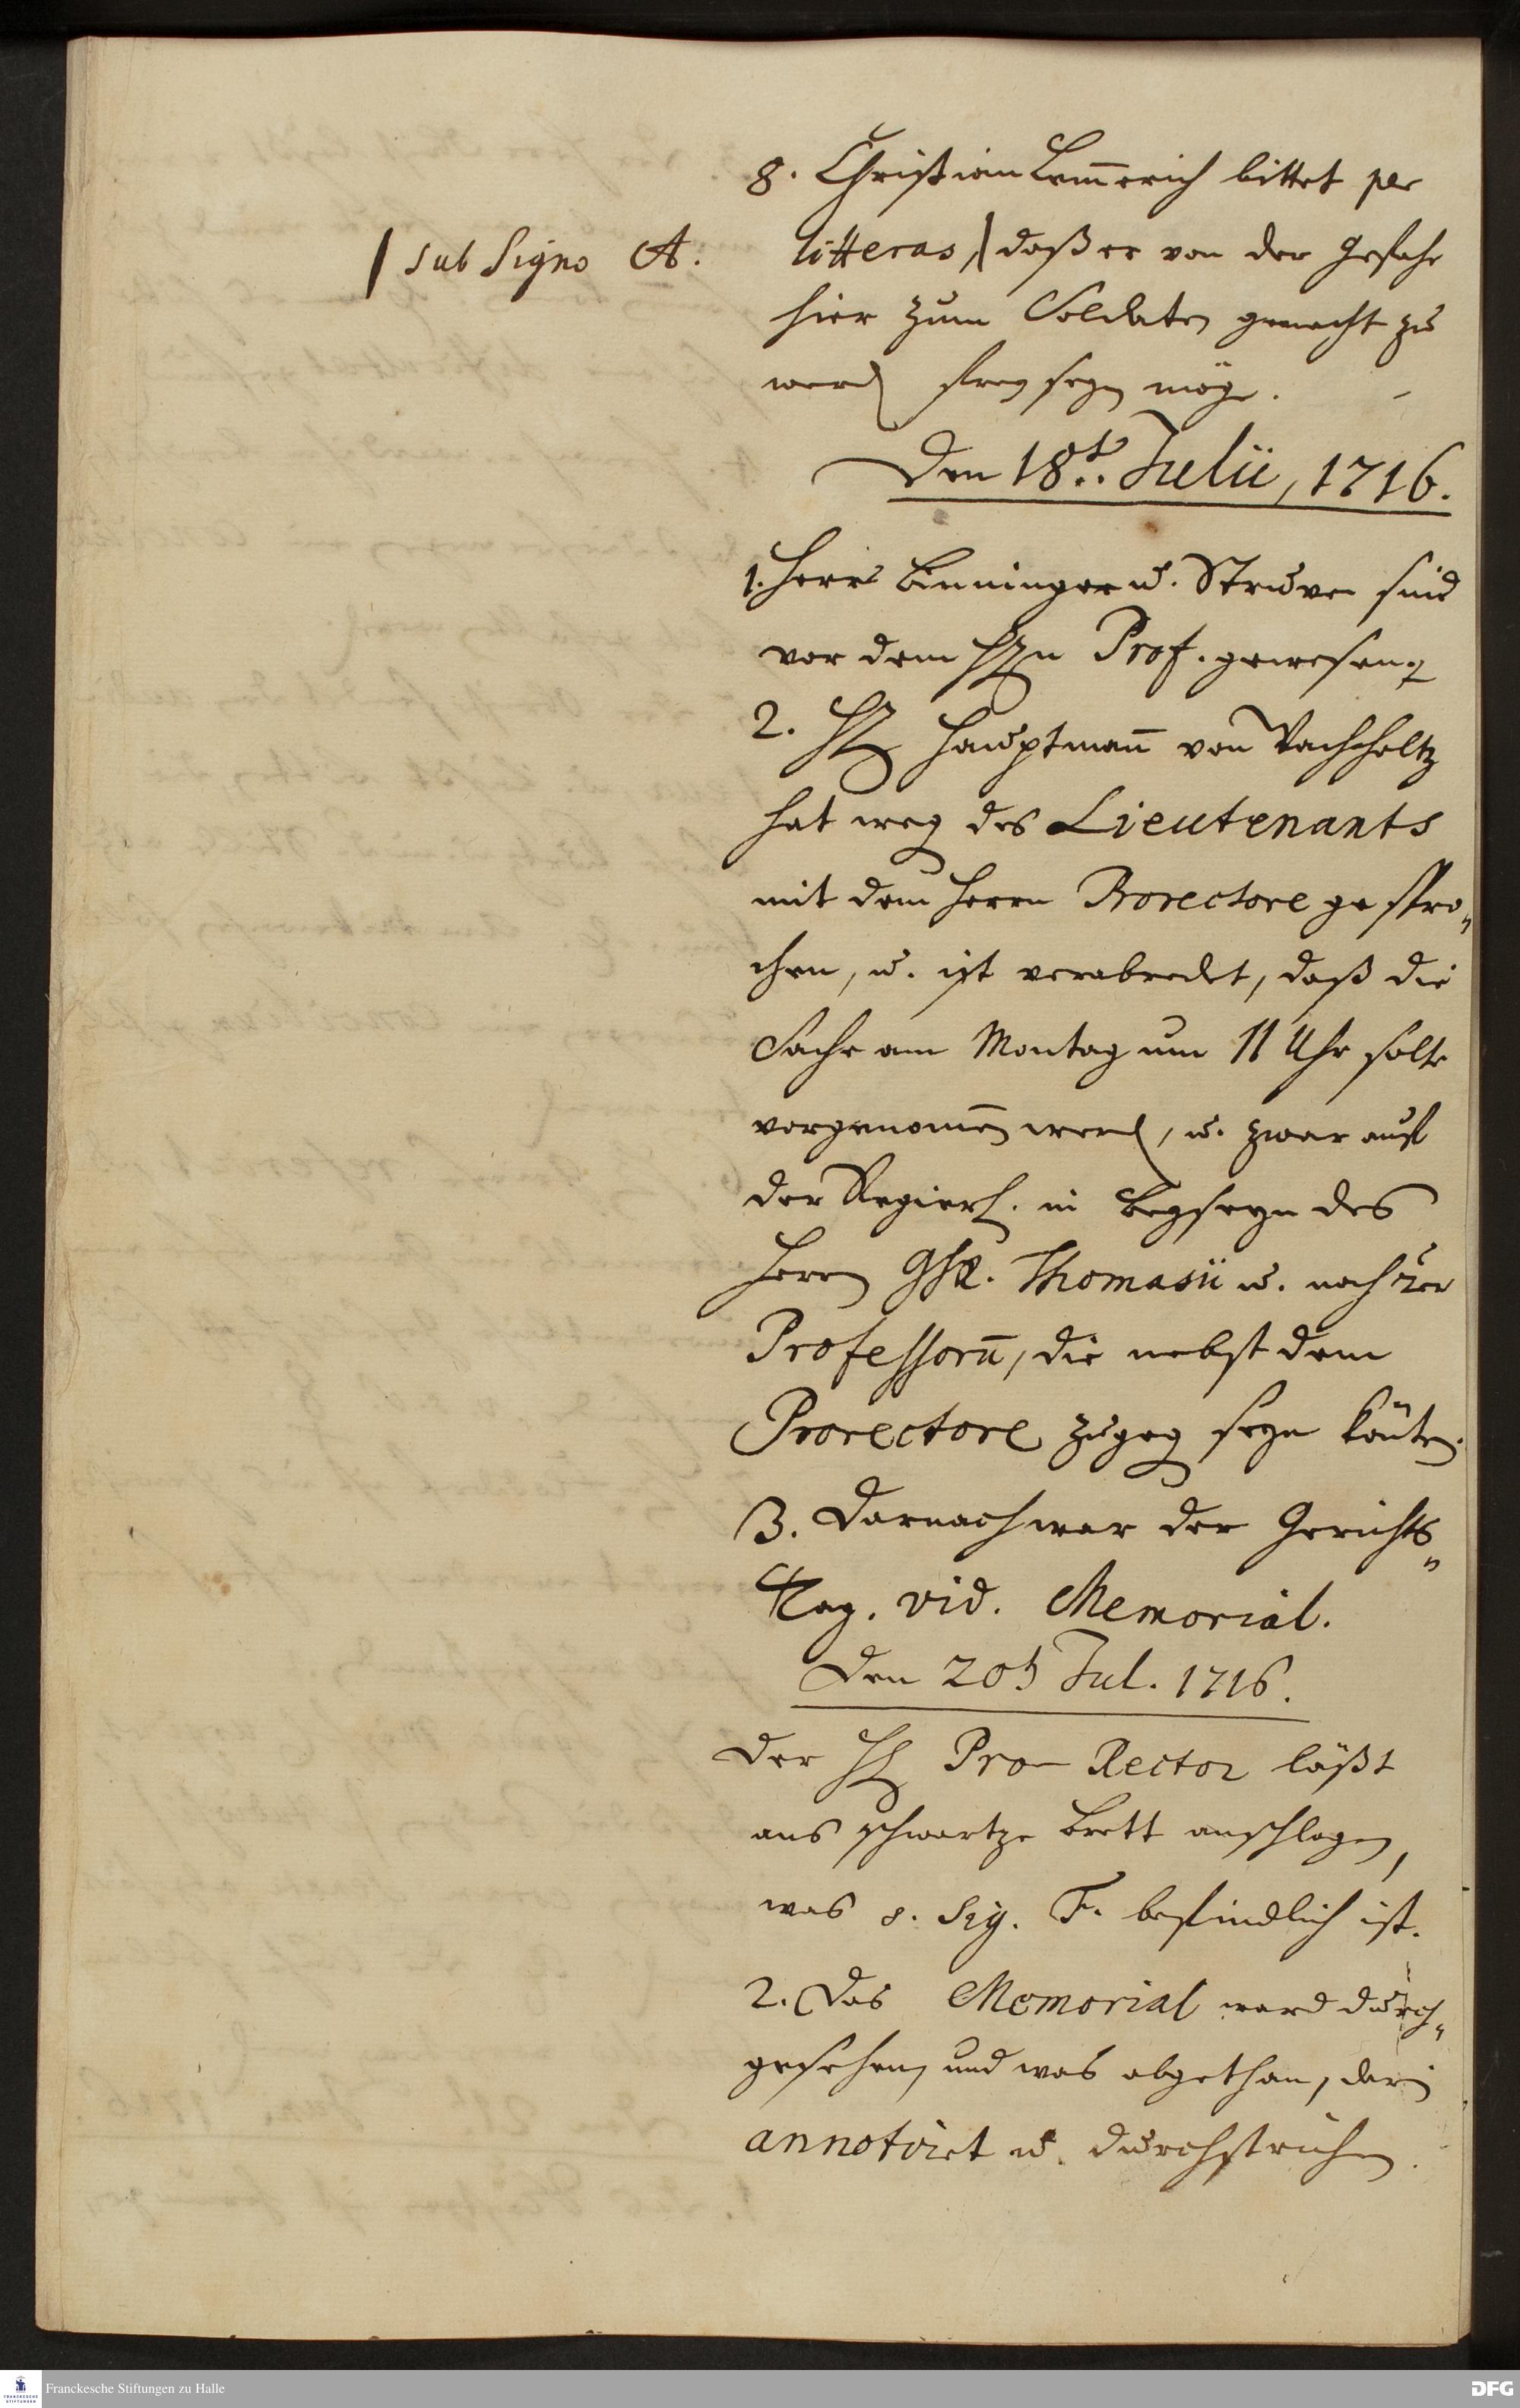 8. Christian Lem̅erich bittet per
| sub Signo A.
litteras,| daß er von der Gefahr
hier zum Soldaten gemacht zu
werd frey seyn möge.
Den 18t. Julii, 1716.
1. Herr Binninger u. Struve sind
vor dem Hn Prof. gewesen
2. H Hauptman̅ von Vachholtz
hat weg des Lieutenants
mit dem Herrn Prorectore gespro„
chen, u. ist verabredet, daß die
Sache am Montag um 11 Uhr solte
vorgenom̅en werd, u. zwar auf
der Regier. in Beyseyn des
Herrn GhR. Thomasii u. noch 2er
Professoru̅, die nebst dem
Prorectore zugeg seyn kön̅ten.
3. Darnach war der Gerichts„
Tag. vid. Memorial.
Den 20t Jul. 1716.
Der H Pro-Rector läßt
ans schwartze Brett anschlagen,
was s. Sig. F. befindlich ist.
2. Das Memorial ward durch„
gesehen, und was abgethan, darin
annotirt u. durchstrichen.
Franckesche Stiftungen zu Halle
DFG